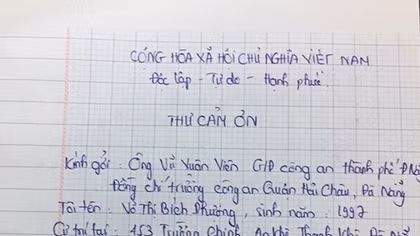 CỘNG HÒA XÃ HỘI CHỦ NGHĨA VIỆT NAM
Độc lập - Tự do - Hạnh phúc
THƯ CẢN ƠN
Kính gởi : Ông Vũ Xuân Viên GĐ công an thành phố
Đồng chí trưởng công an Quận Hải Châu, Đà Nẵng
Tôi tên : Võ Thị Bích Phường, sinh năm : 1997
Cư trú tại : 453 Trường Chinh, An Khê, Thanh Khê